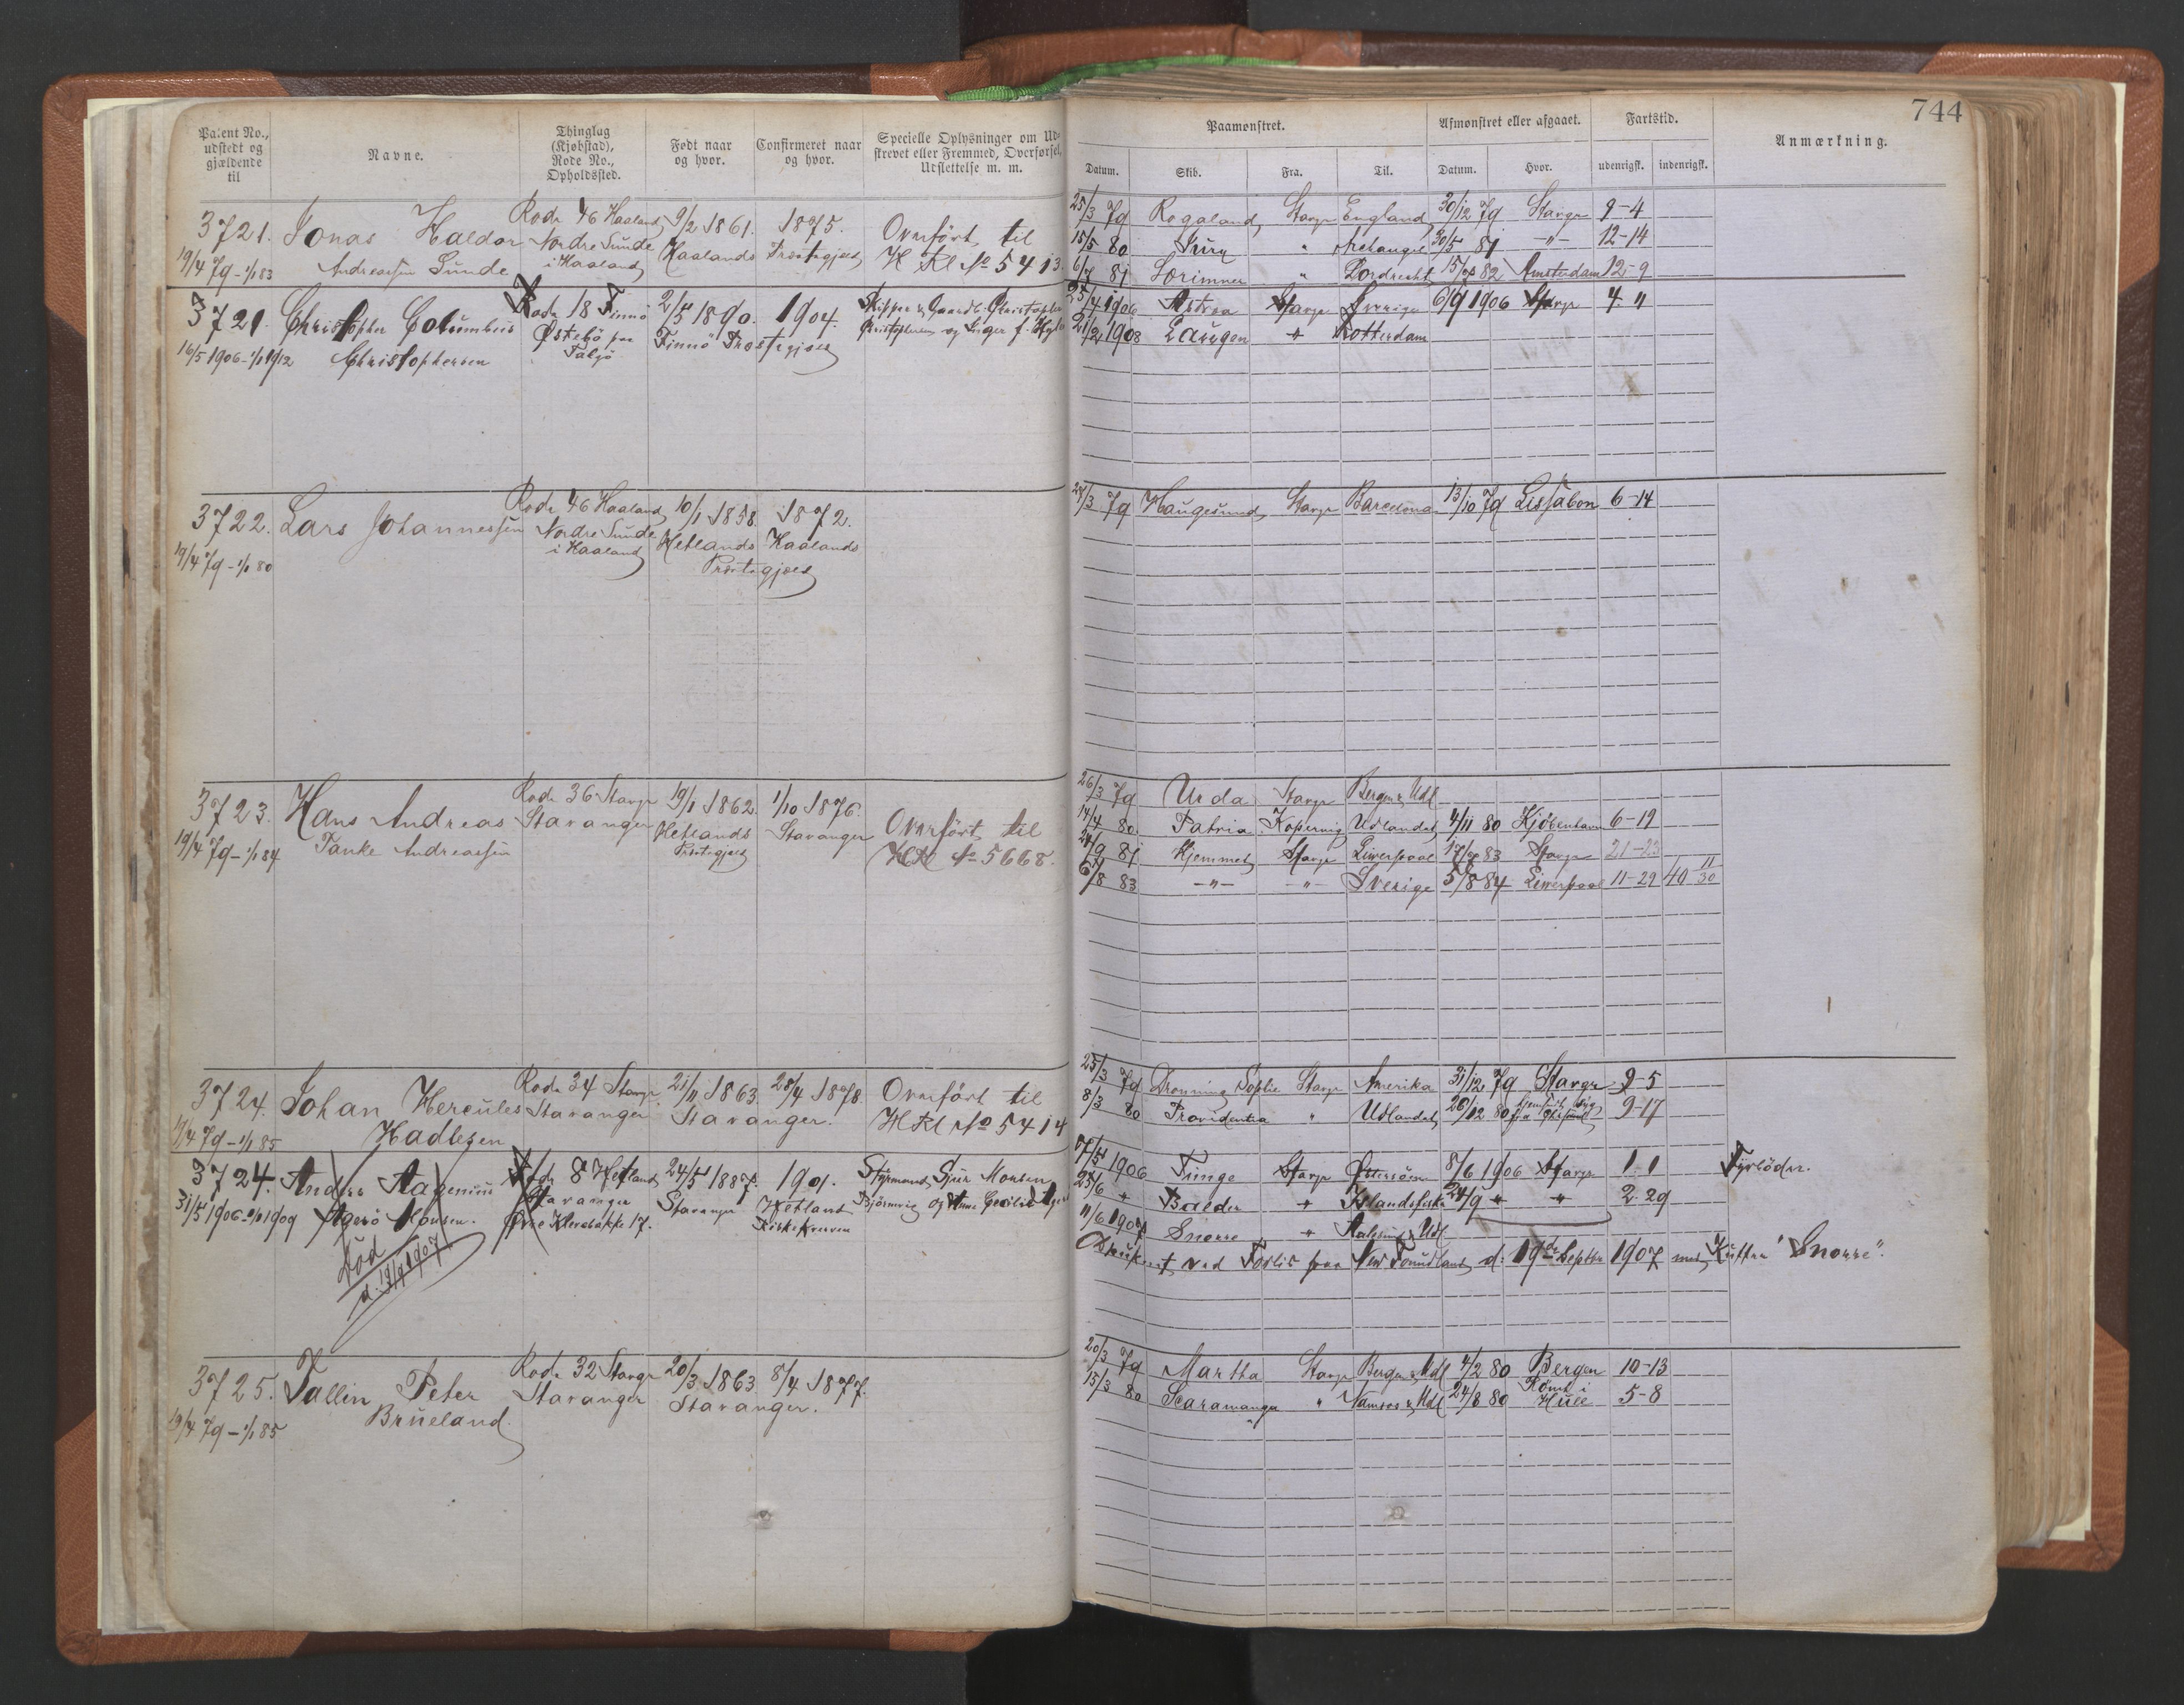 744
Patent No., udstedt og gjældende til
Navne.
Thinglag (Kjøbstad), Rode No., Opholdssted.
Født naar og hvor.
Confirmeret naar og hvor.
Specielle Oplysninger om Udskrevet eller Fremmed, Overførsel, Udslettelse m. m.
Paamønstret.
Afmønstret eller afgaaet.
Fartstid.
Anmærkning.
Datum.
Skib.
Fra.
Til.
Datum.
Hvor.
udenrigsk.
indenrigsk.
3721. Jonas Haldor Rode 46 Haaland 9/2 1861. 1875. Overført til
19/4 79 - 1/1 83 Andreassen Sunde Nordre Sunde i Haaland Haalands Præstegjæld H Rl No 5413.
25/3 79 Rogaland Stavgr England 30/12 79 Stavgr 9-4
15/5 80 " Archangel 30/5 81 -"- 12-14
6/7 81 Lorimner " Dordrecht 82 Amsterdam 12-9
3721. Christopher Columbus Rode 18 Finnø 2/5 1890. 1904. Skipper & Gaardb. Christopher
16/5 1906 - 1/1 1912 Christophersen Østebø paa Talgø Finnø Præstegjæld
25/4 1906 Astrea Stavgr Sverige 6/9 1906 Stavgr 4 "
21/2 1908 Laugen " Rotterdam
3722. Lars Johannessen Rode 46 Haaland 10/1 1858. 1872.
19/4 79 - 1/1 80 Nordre Sunde i Haaland Hetlands Haalands Præstegjæld
25/3 79 Haugesund Stavgr Barcelona 13/10 79 Lissabon 6-14
3723. Hans Andreas Rode 36 Stavgr 19/1 1862. 1/10 1876. Overført til
19/4 79 - 1/1 84 Tanke Andreassen Stavanger Hetlands Præstegjæld Stavanger HRl No 5668.
26/3 79 Urda Stavgr Bergen & Udl
14/4 80 Patria Kopervig Udlandet 4/11 80 Kjøbenhavn 6-19
24/9 81 Hjemmet Stavgr Liverpool 83 Stavgr 21-23
6/8 83 -"- -"- Sverige 5/8 84 Liverpool 11-29 40 11/30
3724. Johan Hercules Rode 34 Stavgr. 21/11 1863. 28/4 1878. Overført til
19/4 79 - 1/1 85 Hadlesen Stavanger Stavanger. HRl No 5414
25/3 79 Dronning Sophie Stavgr Amerika 31/12 79 Stavgr 9-5
8/3 80 Providentia " Udlandet 26/12 80 9-17
3724. Anders Aagenius Rode 8 Hetland 24/5 1887. 1901. Styrmand Sjur Monsen
31/5 1906 - 1/1 1909 Agerø Monsen. Stavanger Øvre Kleivebakke 17. Stavanger Hetland
Død d. 19/9 1907
17/5 1906 Tunge Stavgr Østersøen 8/6 1906 Stavgr 1-1 Fyrbøder.
25/6 " Balder " Islandsfiske 24/9 " " 2-29
11/6 1907 Snorre " Aalesund & Udl
Druknet ved Forlis paa New Foundland d: 19de Septbr 1907 med Kutter "Snorre".
3725. Tallin Peter Rode 32 Stavgr 20/3 1863. 8/4 1877.
19/4 79 - 1/1 85 Brueland. Stavanger Stavanger.
20/3 79 Martha Stavgr Bergen & Udl 4/2 80 Bergen 10-13
15/3 80 Scaramanga " Namsos & Udl 24/8 80 Rømt i Hull 5-8